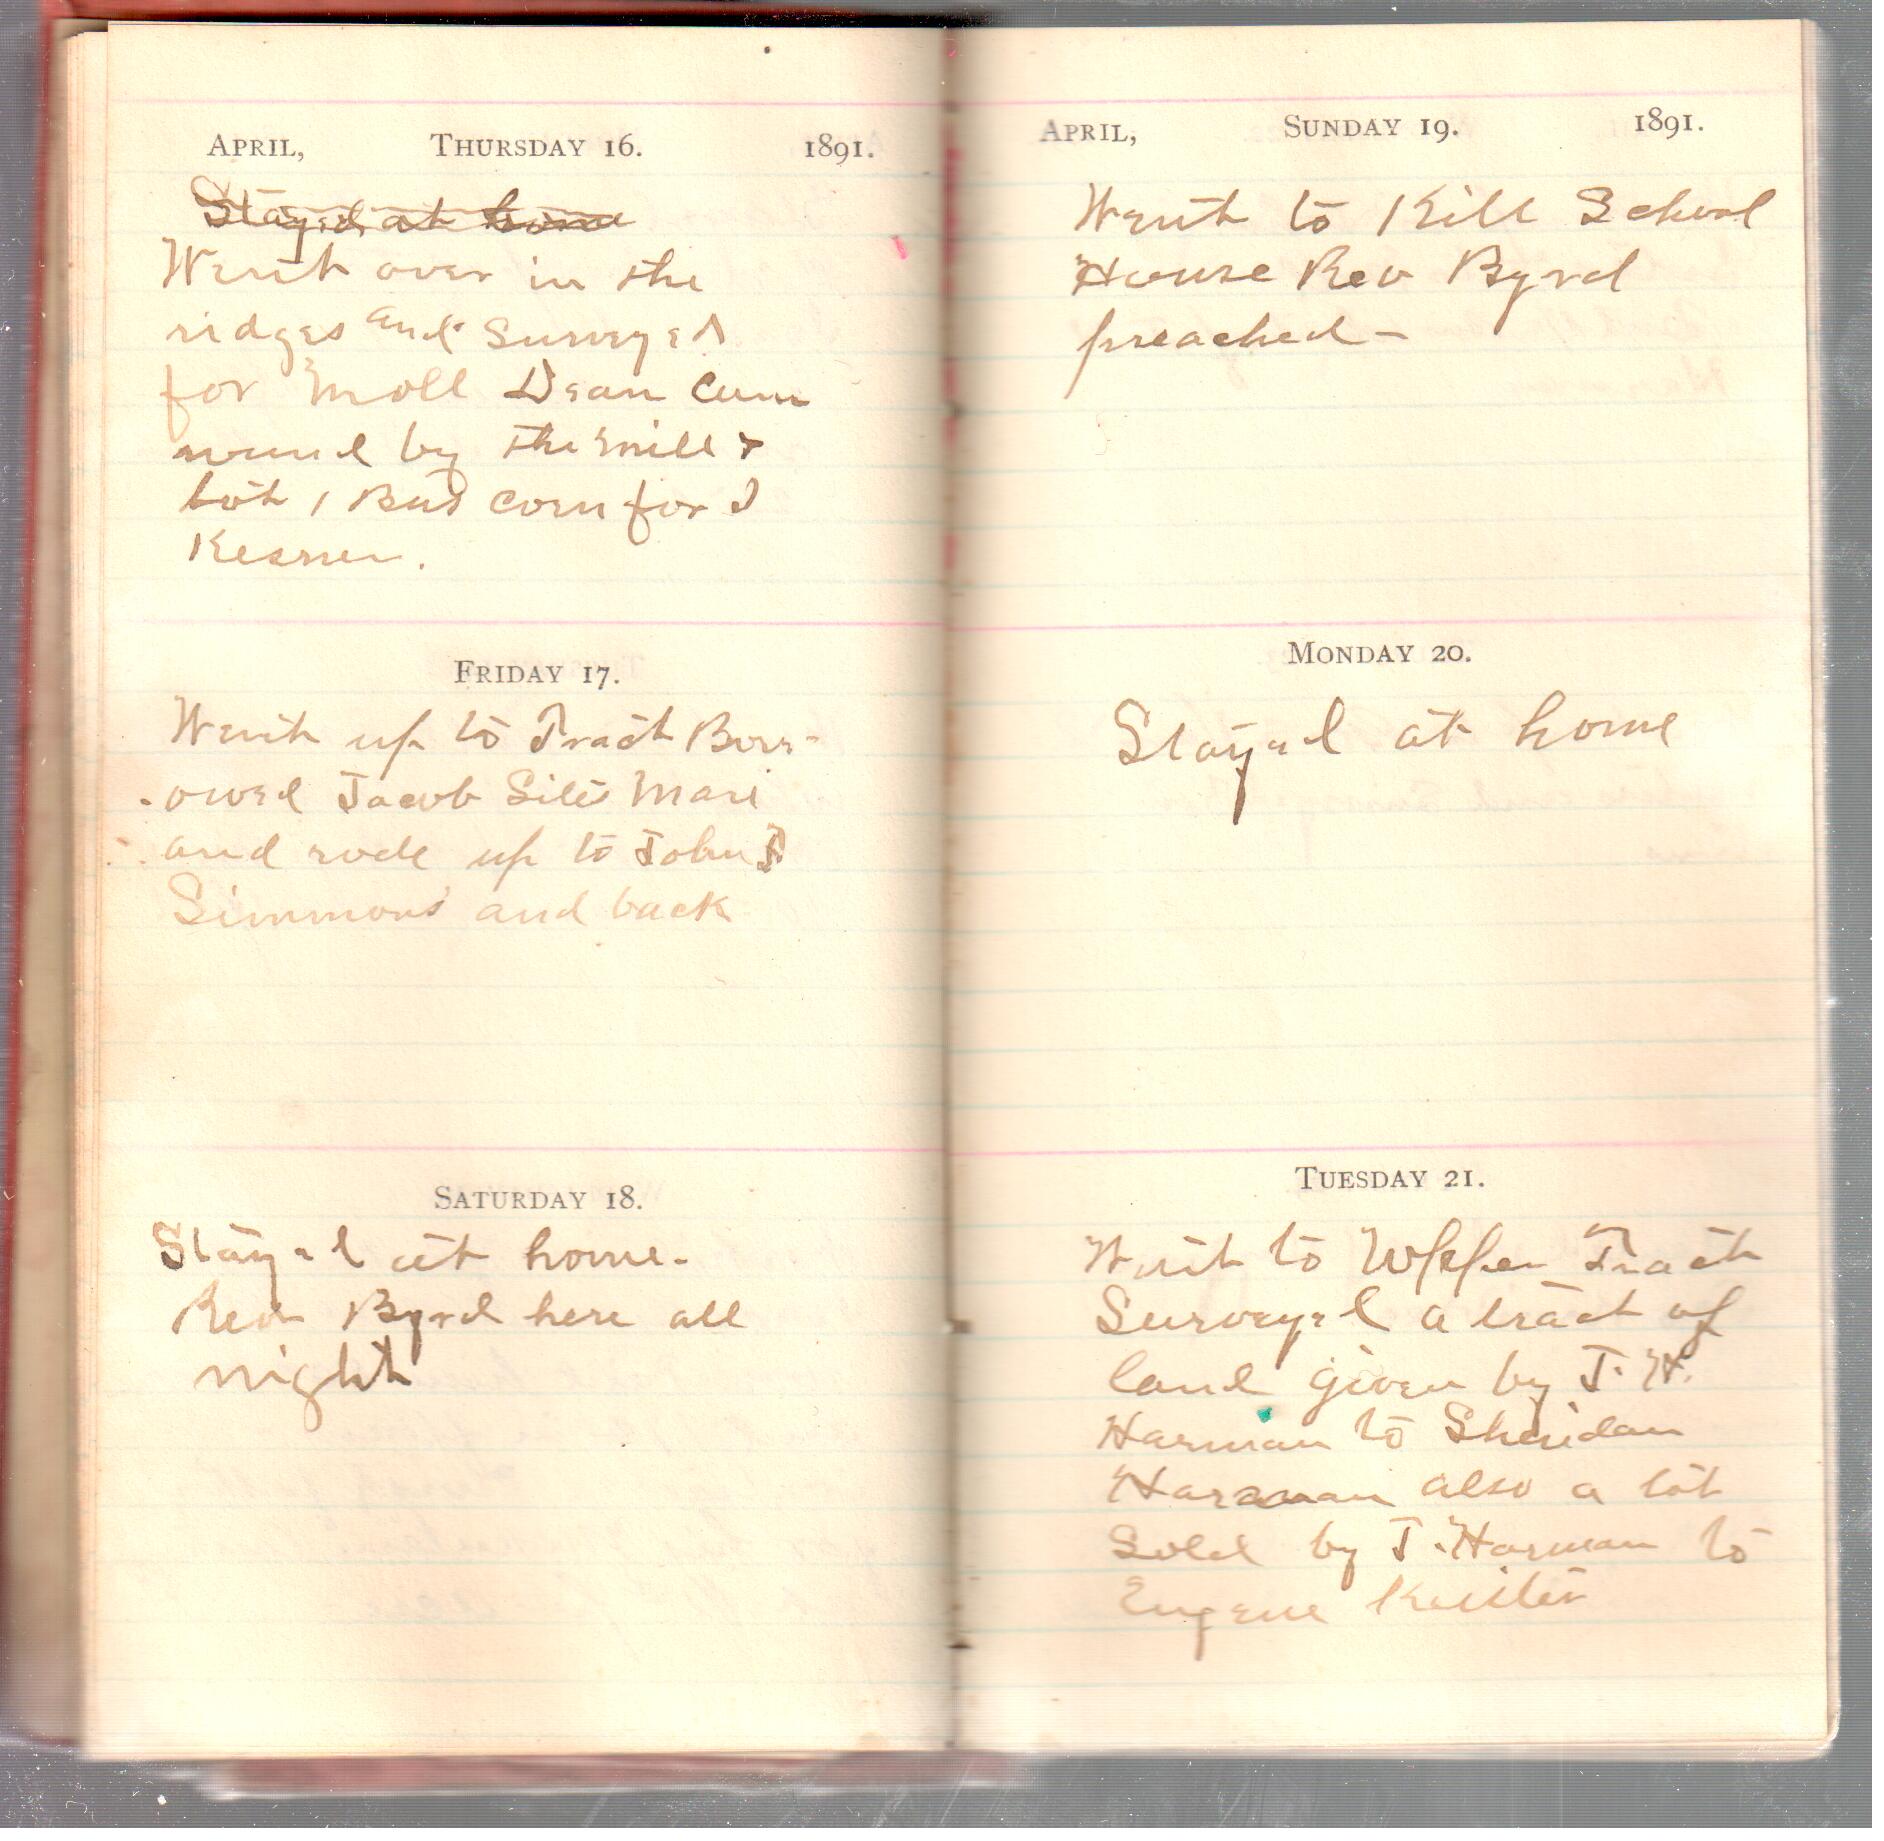 APRIL, THURSDAY 16. 1891.
Stayed at home
Went over in the
ridges and Surveyed
for Moll Dean Cum
around by the mill &
bot 1 Bus corn for J
Kesner.
FRIDAY 17.
Went up to Tract Borr-
owed Jacob Sites Mare
and rode up to John
Simmons and back
SATURDAY 18.
Stayed at home.
Rev Byrd here all
night
APRIL, SUNDAY 19. 1891.
Went to Kill School
House Rev Byrd
preached -
MONDAY 20.
Stayed at home
TUESDAY 21.
Went to Upper Tract
Surveyed a tract of
land given by J. H.
Harman to Sheridan
Harman also a lot
Sold by J. Harman to
Eugene Keister